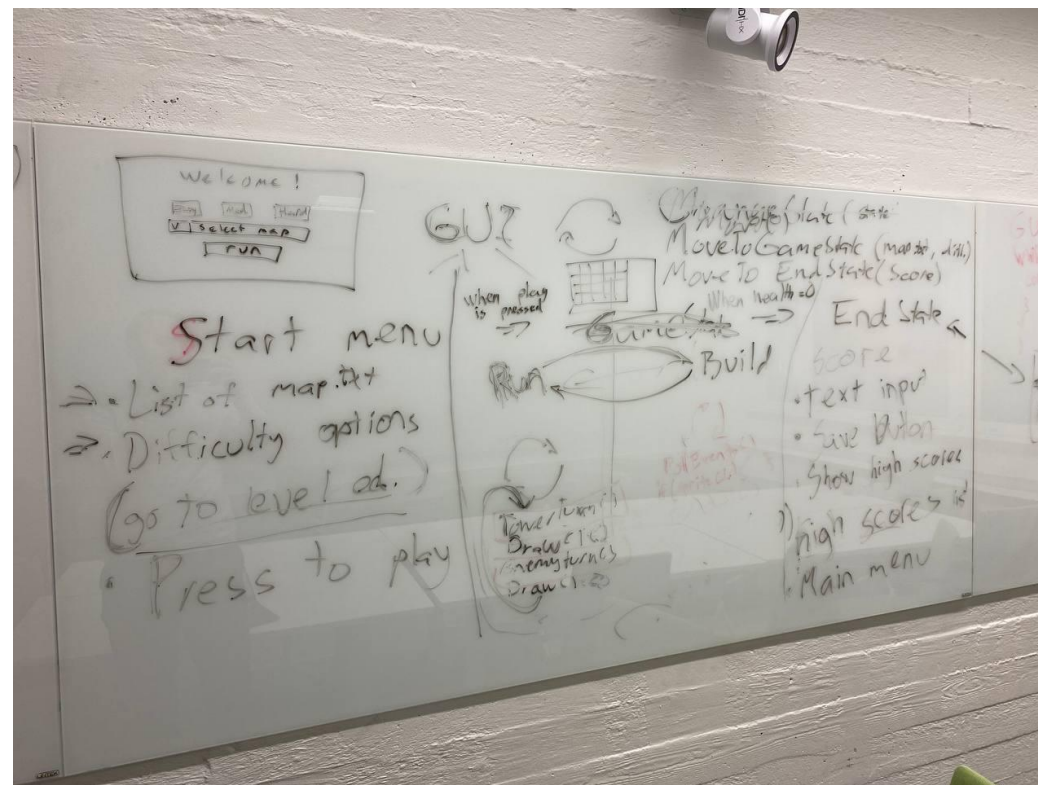 Welcome!
Easy Med Hard
V select map
run
Start menu
List of map.txt
Difficulty options
(go to level ed.)
Press to play
GUI
When play
is pressed
GameState
Run
Build
TowerTurn()
Draw()
Enemyturn()
Draw()
State(
MoveToGameState (map.txt, diff.)
Move To EndState(Score)
When health=0
End State
Score
• text input
• Save button
• Show high scores
high scores
Main menu